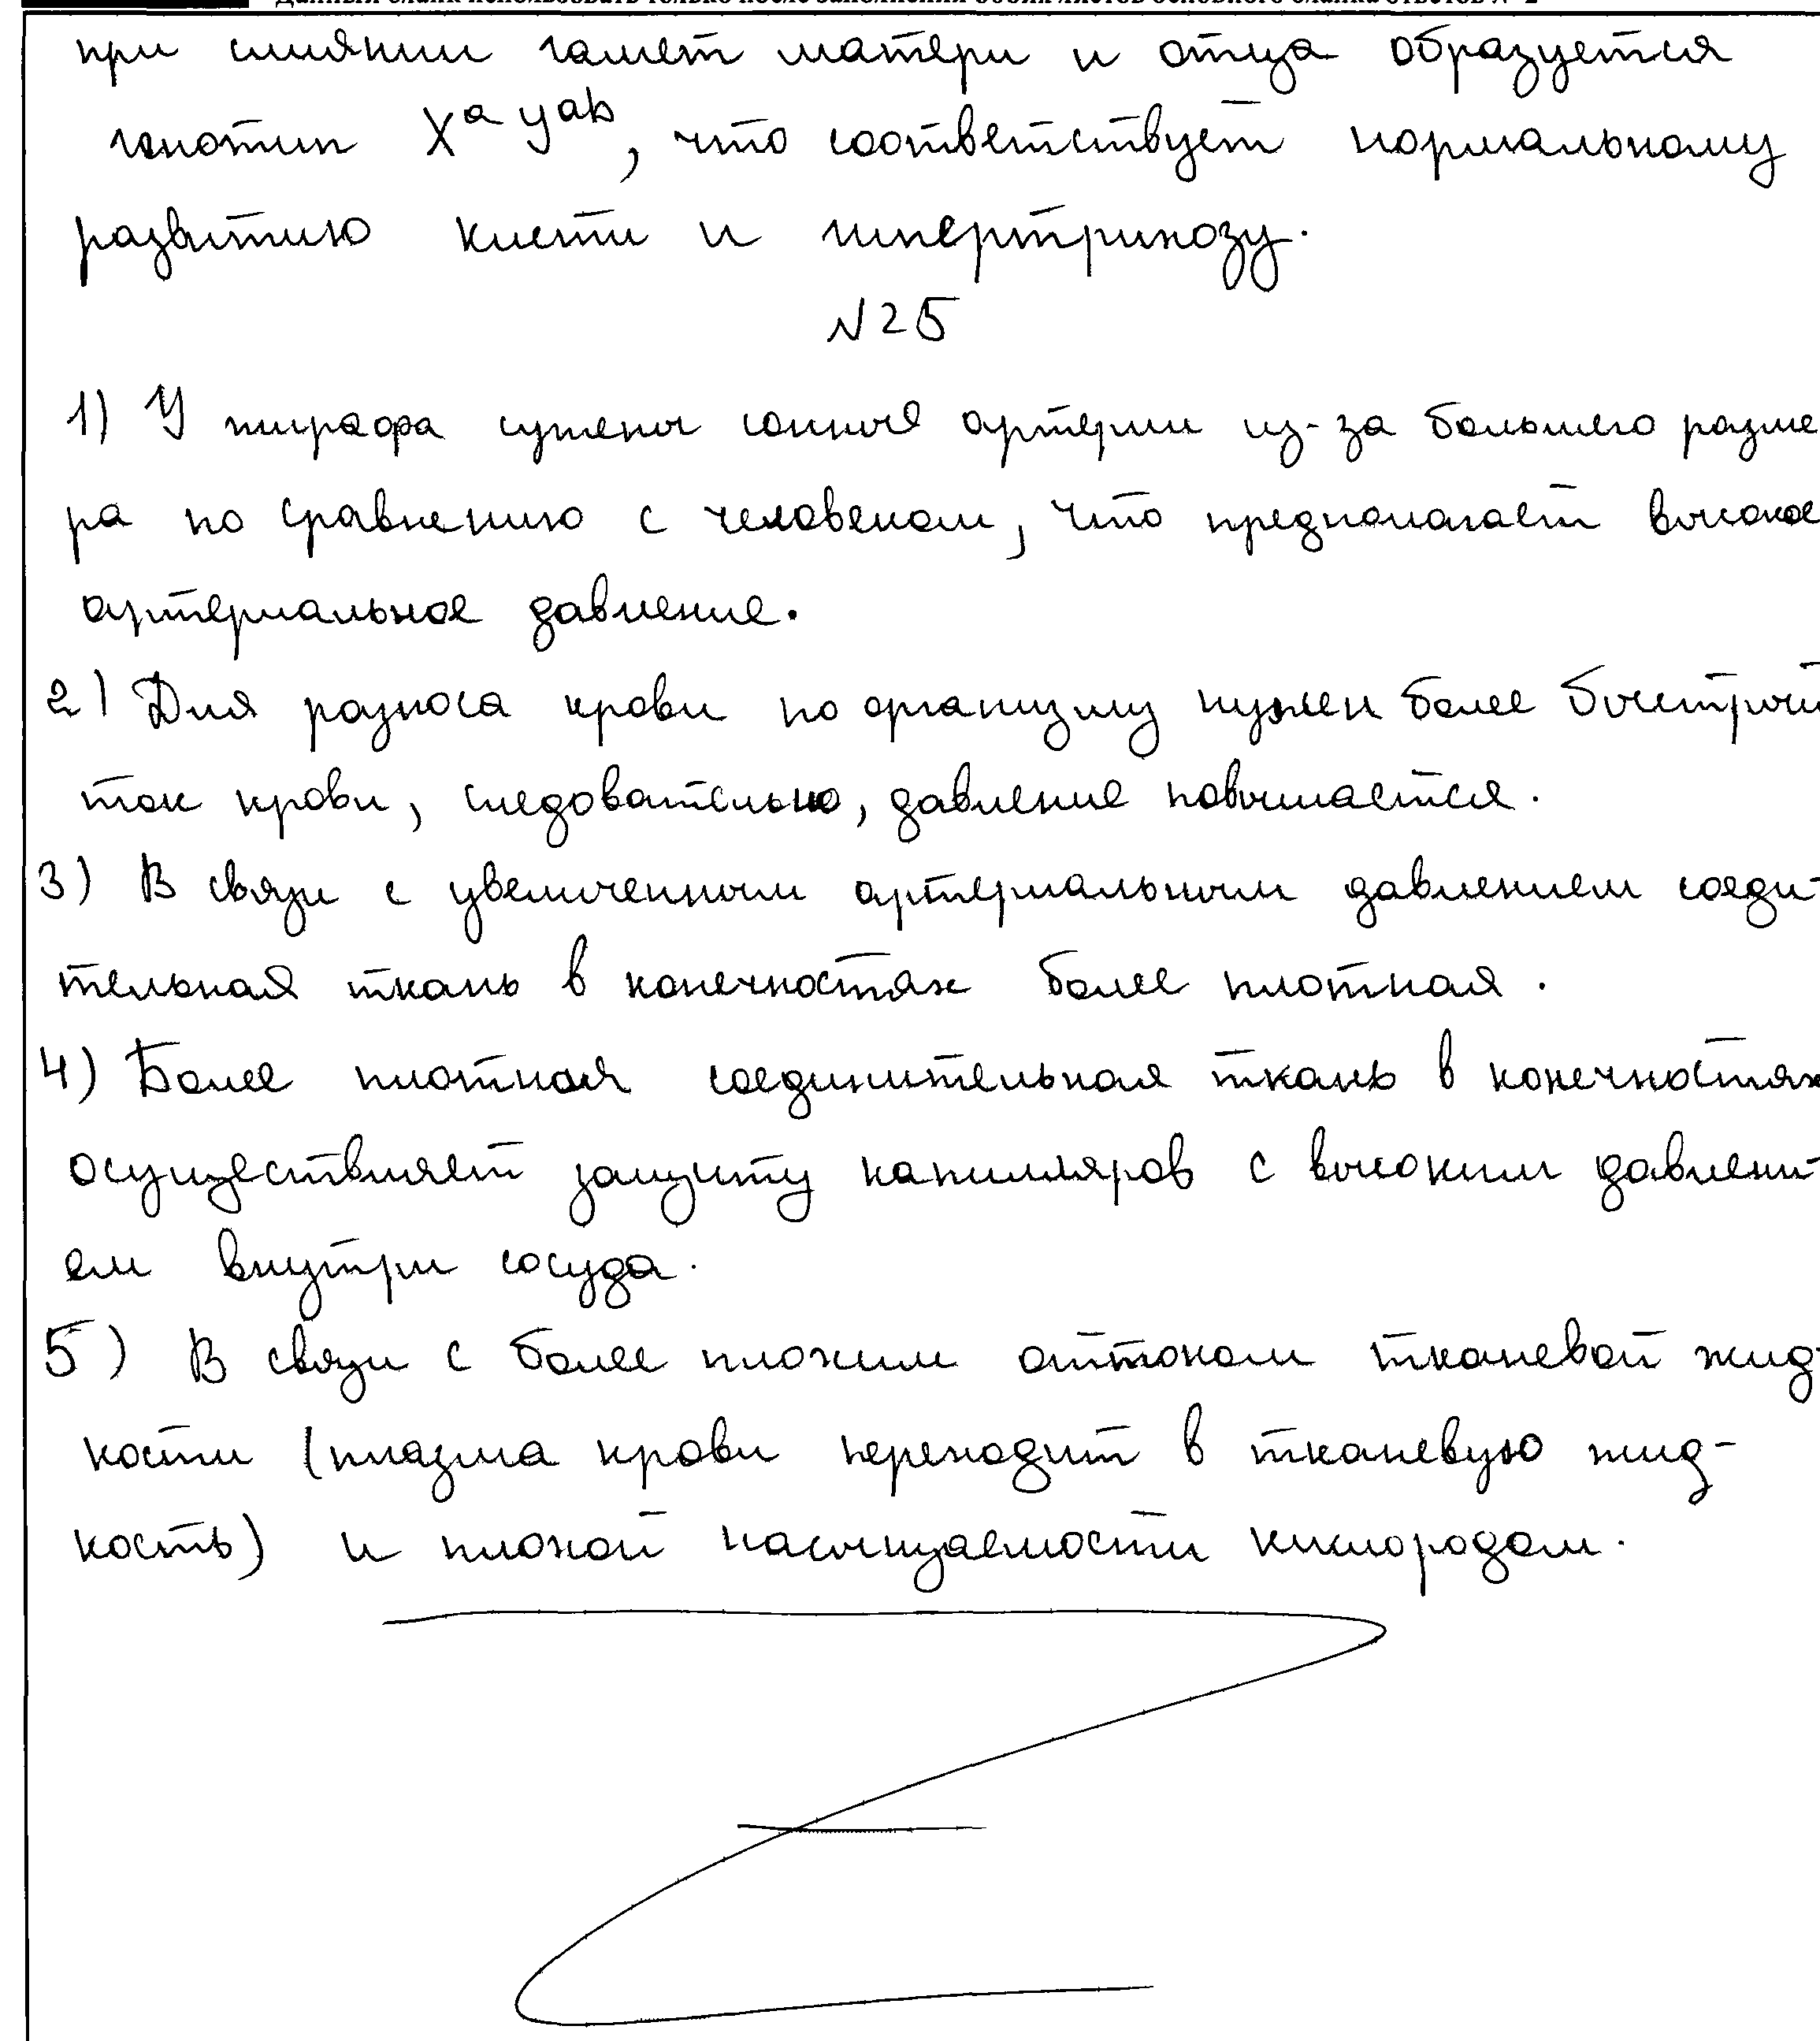 Данный бланк использовать только после заполнения обеих листов основного бланка ответов № 2
при слиянии гамет матери и отца образуется
генотип Xᵃ Yᵃᵇ, что соответствует нормальному
развитию кисти и гипертрихозу.
N25
1) У жирафа сужены сонные артерии из-за большего разме
ра по сравнению с человеком, что предполагает высокое
артериальное давление.
2) Для разноса крови по организму нужен более быстрый
ток крови, следовательно, давление повышается.
3) В связи с увеличенным артериальным давлением соеди-
тельная ткань в конечностях более плотная.
4) Более плотная соединительная ткань в конечностях
осуществляет защиту капилляров с высоким давлени
ем внутри сосуда.
5) В связи с более плохим оттоком тканевой жид-
кости (плазма крови переходит в тканевую жид-
кость) и плохой насыщаемости кислородом.